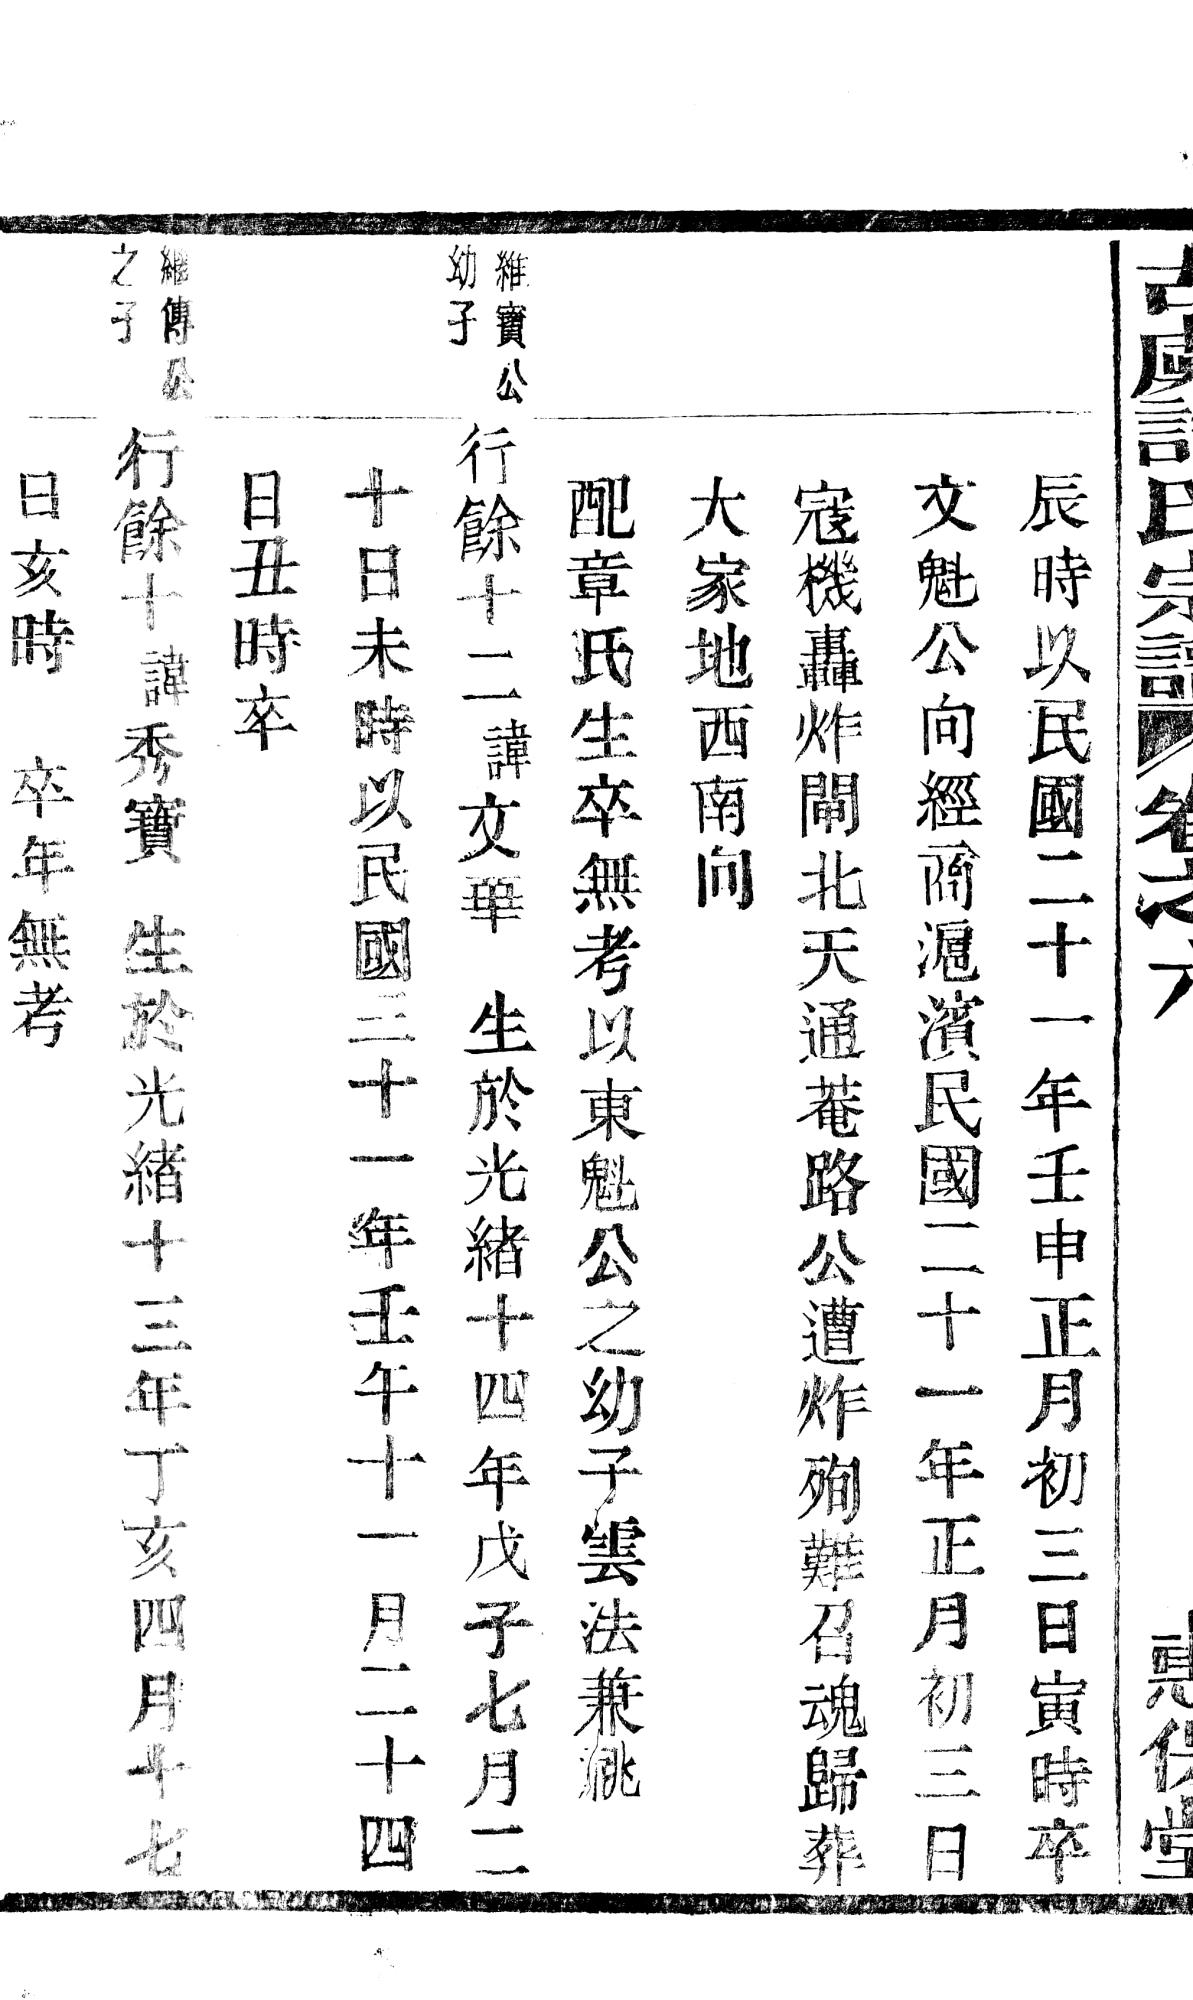 古虞許氏宗譜 卷之六 惠 堂
辰時以民國二十一年壬申正月初三日寅時卒
文魁公向經商滬濱民國二十一年正月初三日
寇機轟炸閘北天通菴路公遭炸殉難召魂歸葬
大家地西南向
配章氏生卒無考以東魁公之幼子雲法兼祧
維寶公
幼子
行餘十二諱文華 生於光緒十四年戊子七月二
十日未時以民國三十一年壬午十一月二十四
日丑時卒
繼傳公
之子
行餘十諱秀寶 生於光緒十三年丁亥四月十七
日亥時 卒年無考